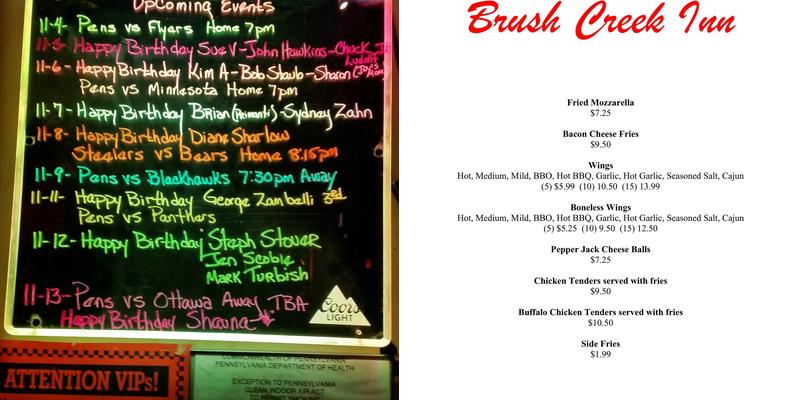 Upcoming Events
11-4- Pens vs Flyers Home 7pm
11-5- Happy Birthday Sue V-John Hawkins-Chuck Jr
Luditt
11-6- Happy Birthday Kim A-Bob Staub-Sharon (Jay's Mom)
Pens vs Minnesota Home 7pm
11-7- Happy Birthday Brian (Primanti)-Sydney Zahn
11-8- Happy Birthday Diane Sharlow
Steelers vs Bears Home 8:15pm
11-9- Pens vs Blackhawks 7:30pm Away
11-11- Happy Birthday George Zambelli 3rd
Pens vs Panthers
11-12- Happy Birthday Steph Stover
Jen Scobie
Mark Turbish
11-13- Pens vs Ottawa Away TBA
Happy Birthday Shauna
Coors
LIGHT
ATTENTION VIPs!
COMMONWEALTH OF PENNSYLVANIA
PENNSYLVANIA DEPARTMENT OF HEALTH
EXCEPTION TO PENNSYLVANIA
CLEAN INDOOR AIR ACT
TO PERMIT SMOKING
Brush Creek Inn
Fried Mozzarella
$7.25
Bacon Cheese Fries
$9.50
Wings
Hot, Medium, Mild, BBQ, Hot BBQ, Garlic, Hot Garlic, Seasoned Salt, Cajun
(5) $5.99 (10) 10.50 (15) 13.99
Boneless Wings
Hot, Medium, Mild, BBQ, Hot BBQ, Garlic, Hot Garlic, Seasoned Salt, Cajun
(5) $5.25 (10) 9.50 (15) 12.50
Pepper Jack Cheese Balls
$7.25
Chicken Tenders served with fries
$9.50
Buffalo Chicken Tenders served with fries
$10.50
Side Fries
$1.99